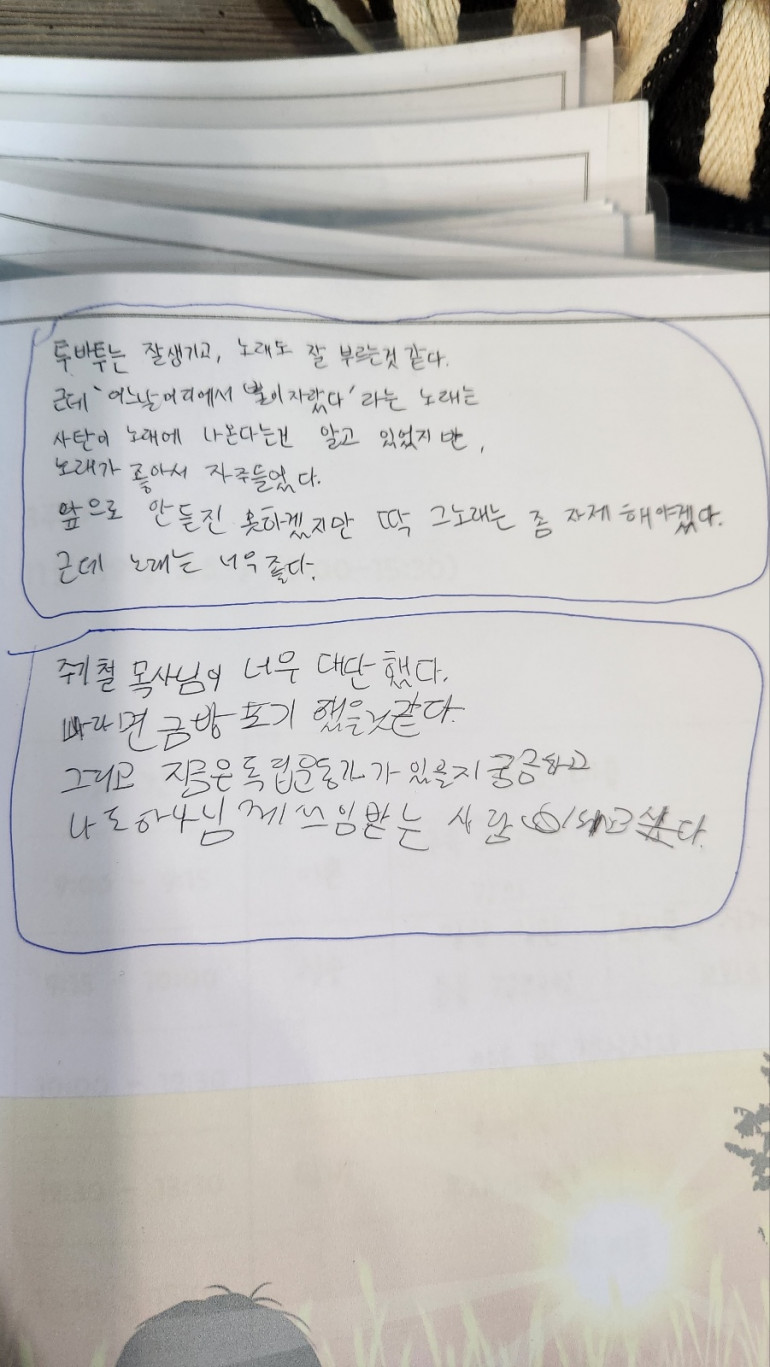 투바투는 잘생기고, 노래도 잘 부르는것 같다.
근데 '어느날머리에서 뿔이자랐다' 라는 노래는
사탄이 노래에 나온다는건 알고 있었지 만,
노래가 좋아서 자주들었다.
앞으로 안듣진 못하겠지만 딱 그노래는 좀 자제 해야겠다.
근데 노래는 너무 좋다.
주기철 목사님이 너무 대단 했다.
나라면 금방 포기 했을것같다.
그리고 지금은 독립운동가가 있을지 궁금하고
나도하나님께 쓰임받는 사람 싶다.